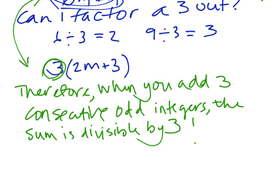 Can I factor a 3 out?
6÷3=2 9÷3=3
3(2m+3)
Therefore, when you add 3
consecutive odd integers, the
sum is divisible by 3!